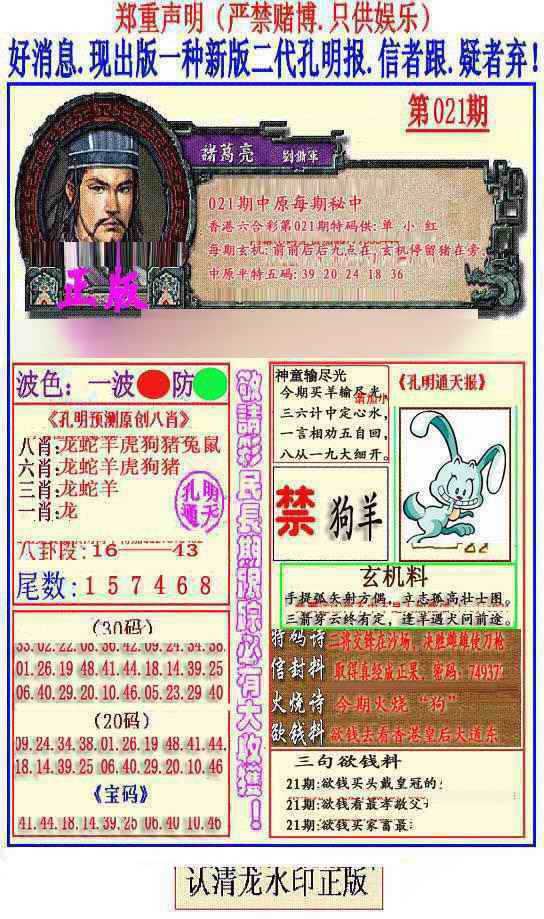 郑重声明（严禁赌博.只供娱乐）
好消息.现出版一种新版二代孔明报.信者跟.疑者弃!
第021期
諸葛亮 劉謝軍
021期中原每期秘中
香港六合彩第021期特码供:单 小 红
每期玄机:前前后后九点在,玄机停留猪在旁.
中原平特五码: 39 20 24 18 36
正版
波色：一波 防
《孔明预测原创八肖》
八肖:龙蛇羊虎狗猪兔鼠
六肖:龙蛇羊虎狗猪
三肖:龙蛇羊
一肖:龙
孔明通天
八卦段:16——43
尾数:157468
(30码)
33.02.22.08.30.42.09.24.34.38
01.26.19.48.41.44.18.14.39.25
06.40.29.20.10.46.05.23.29.40
(20码)
09.24.34.38.01.26.19.48.41.44.
18.14.39.25.06.40.29.20.10.46
《宝码》
41.44.18.14.39.25.06.40.10.46
敬請彩民長期跟踪必有大收獲！
神童输尽光
今期买羊输尽光
三六计中定心水,
一言相劝五自回,
八从一九大细开。
《孔明通天报》
禁 狗羊
玄机料
手提弧矢射方偶，立志孤高壮士图。
三箭穿云终有定，逢羊遇火问前途。
特码诗 三将交锋在沙场，决胜雌雄使刀枪
信封料 取得真经成正果，密码：74937
火烧诗 今期火烧“狗”
欲钱料 欲钱去看香港皇后大道东
三句欲钱料
21期:欲钱买头戴皇冠的
21期:欲钱看最孝敬父
21期:欲钱买家富最
认清龙水印正版